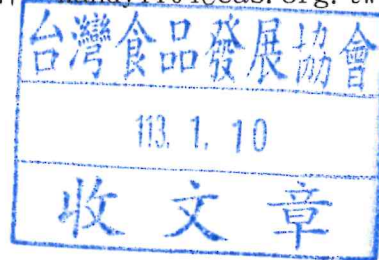 台灣食品發展協會
113. 1. 10
收文章